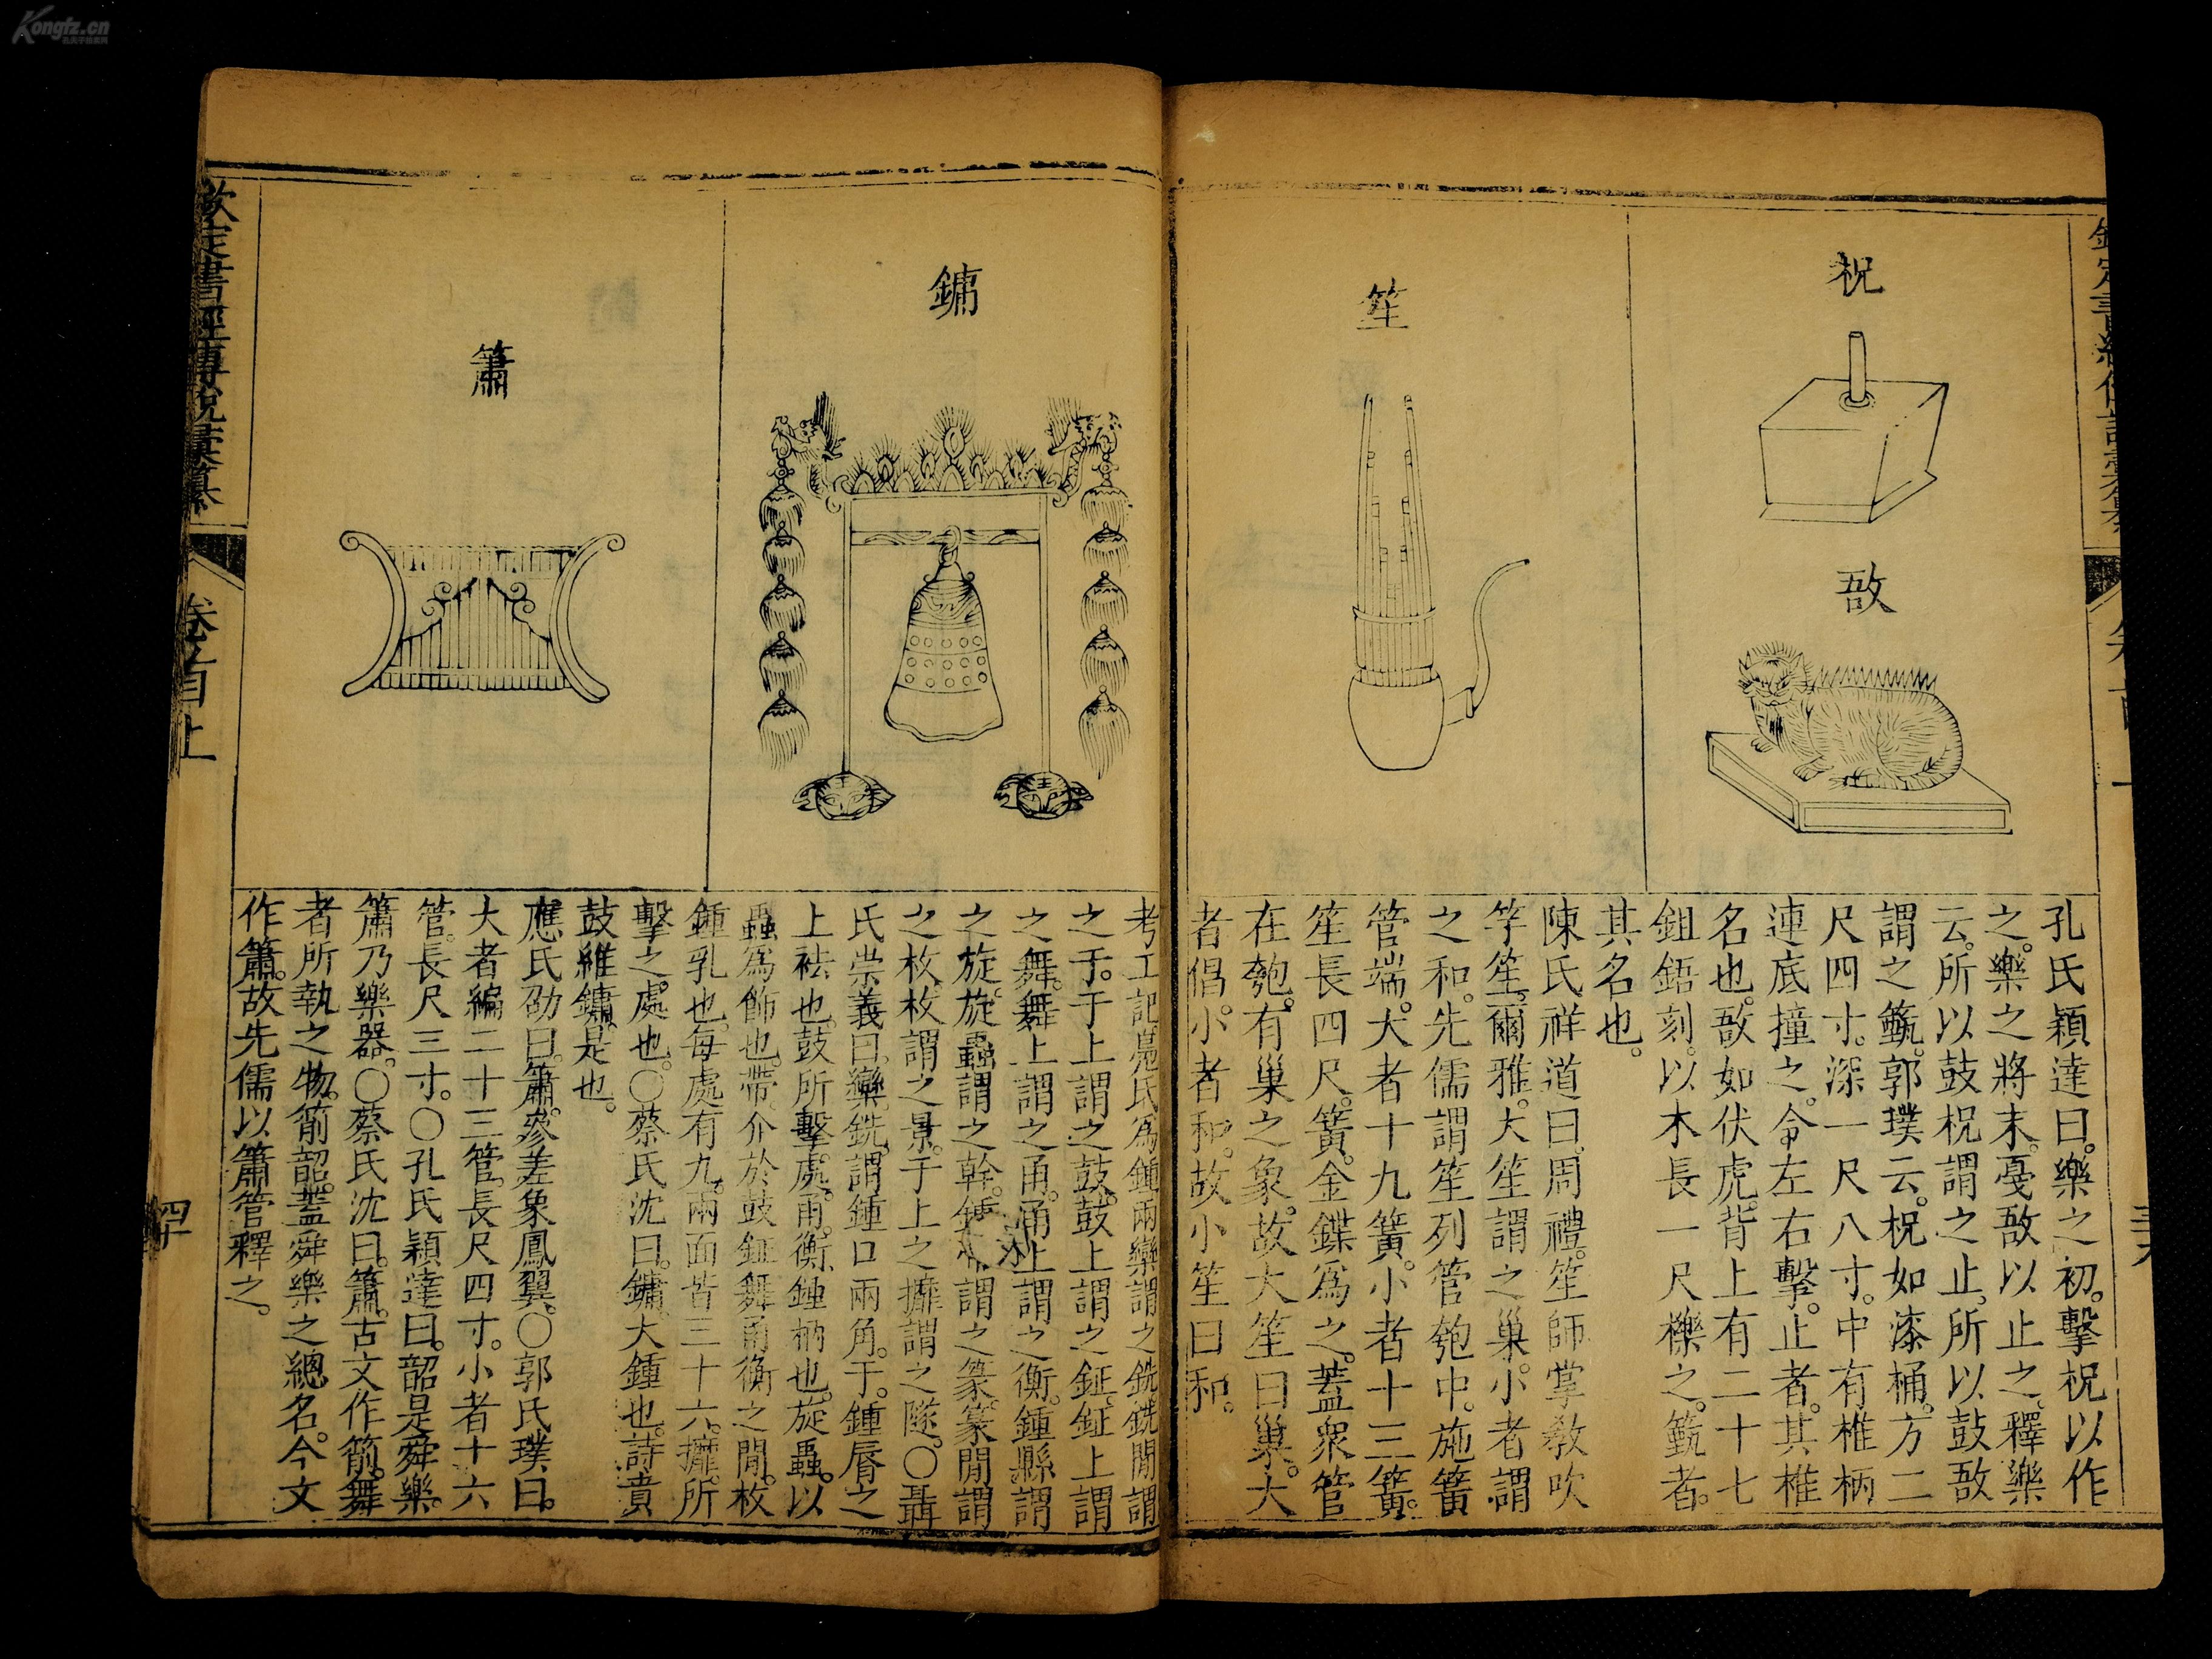 柷
敔
笙
孔氏穎達曰。樂之初。擊柷以作
之。樂之將末。戞敔以止之。釋樂
云。所以鼓柷謂之止。所以鼓敔
謂之籈。郭璞云。柷如漆桶。方二
尺四寸。深一尺八寸。中有椎柄
連底撞之。令左右擊。止者。其椎
名也。敔如伏虎。背上有二十七
鉏鋙刻。以木長一尺櫟之。籈者。
其名也。
陳氏祥道曰。周禮。笙師掌敎吹
竽笙。爾雅。大笙謂之巢。小者謂
之和。先儒謂笙列管匏中。施簧
管端。大者十九簧。小者十三簧。
笙長四尺。簧。金鍱爲之。蓋衆管
在匏。有巢之象。故大笙曰巢。大
者倡。小者和。故小笙曰和。
鏞
簫
考工記鳧氏爲鍾兩欒謂之銑銑閒謂
之于。于上謂之鼓。鼓上謂之鉦。鉦上謂
之舞。舞上謂之甬。甬上謂之衡。鍾縣謂
之旋。旋蟲謂之幹。鍾帶謂之篆。篆閒謂
之枚。枚謂之景。于上之攠謂之隧。〇聶
氏崇義曰。欒銑。謂鍾口兩角。于。鍾脣之
上袪也。鼓所擊處。甬。衡。鍾柄也。旋蟲。以
蟲爲飾也。帶。介於鼓鉦舞甬衡之閒。枚
鍾乳也。每處有九。兩面皆三十六。攠。所
擊之處也。〇蔡氏沈曰。鏞。大鍾也。詩賁
鼓維鏞。是也。
應氏劭曰。簫。參差象鳳翼。〇郭氏璞曰。
大者編二十三管。長尺四寸。小者十六
管。長尺三寸。〇孔氏穎達曰。韶是舜樂。
簫乃樂器。〇蔡氏沈曰。簫。古文作箾。舞
者所執之物。箾韶。蓋舜樂之總名。今文
作簫。故先儒以簫管釋之。
欽定書經傳說彙纂
卷首上
四十
Kongfz.cn